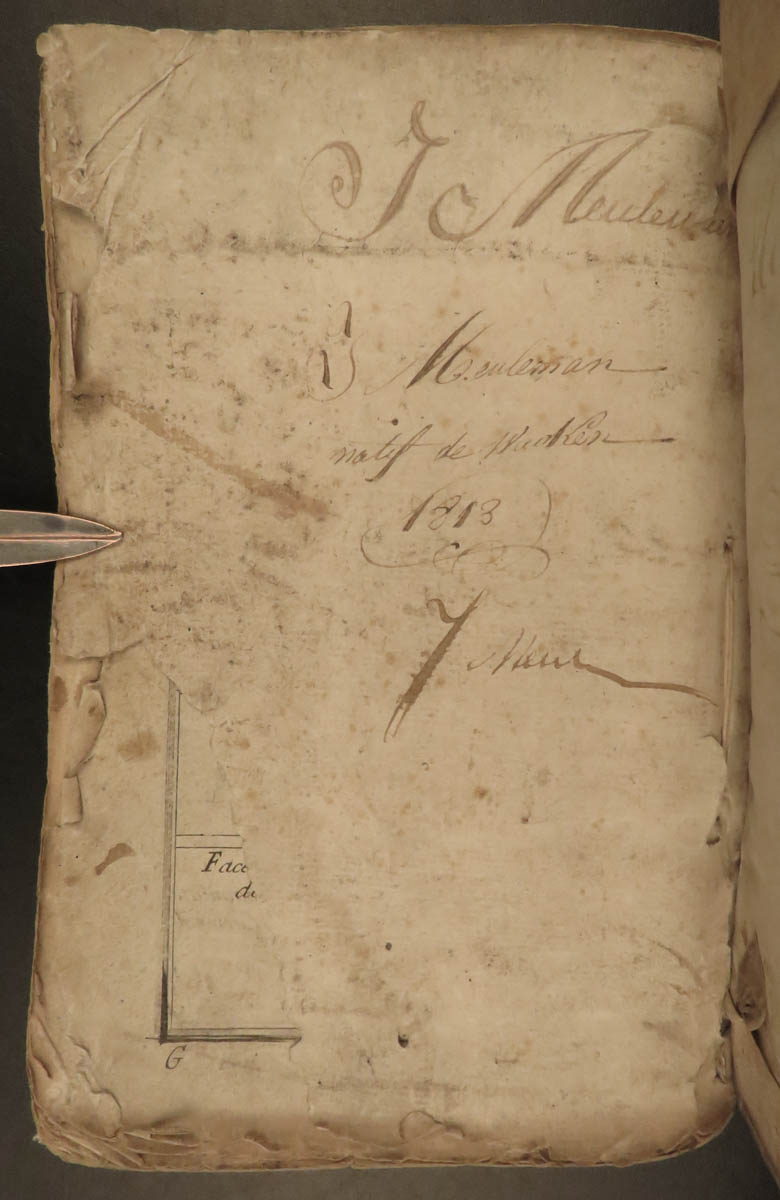 J C Meuleman
J Meuleman
natif de Wacken
1813
J Meul
Face
de
G